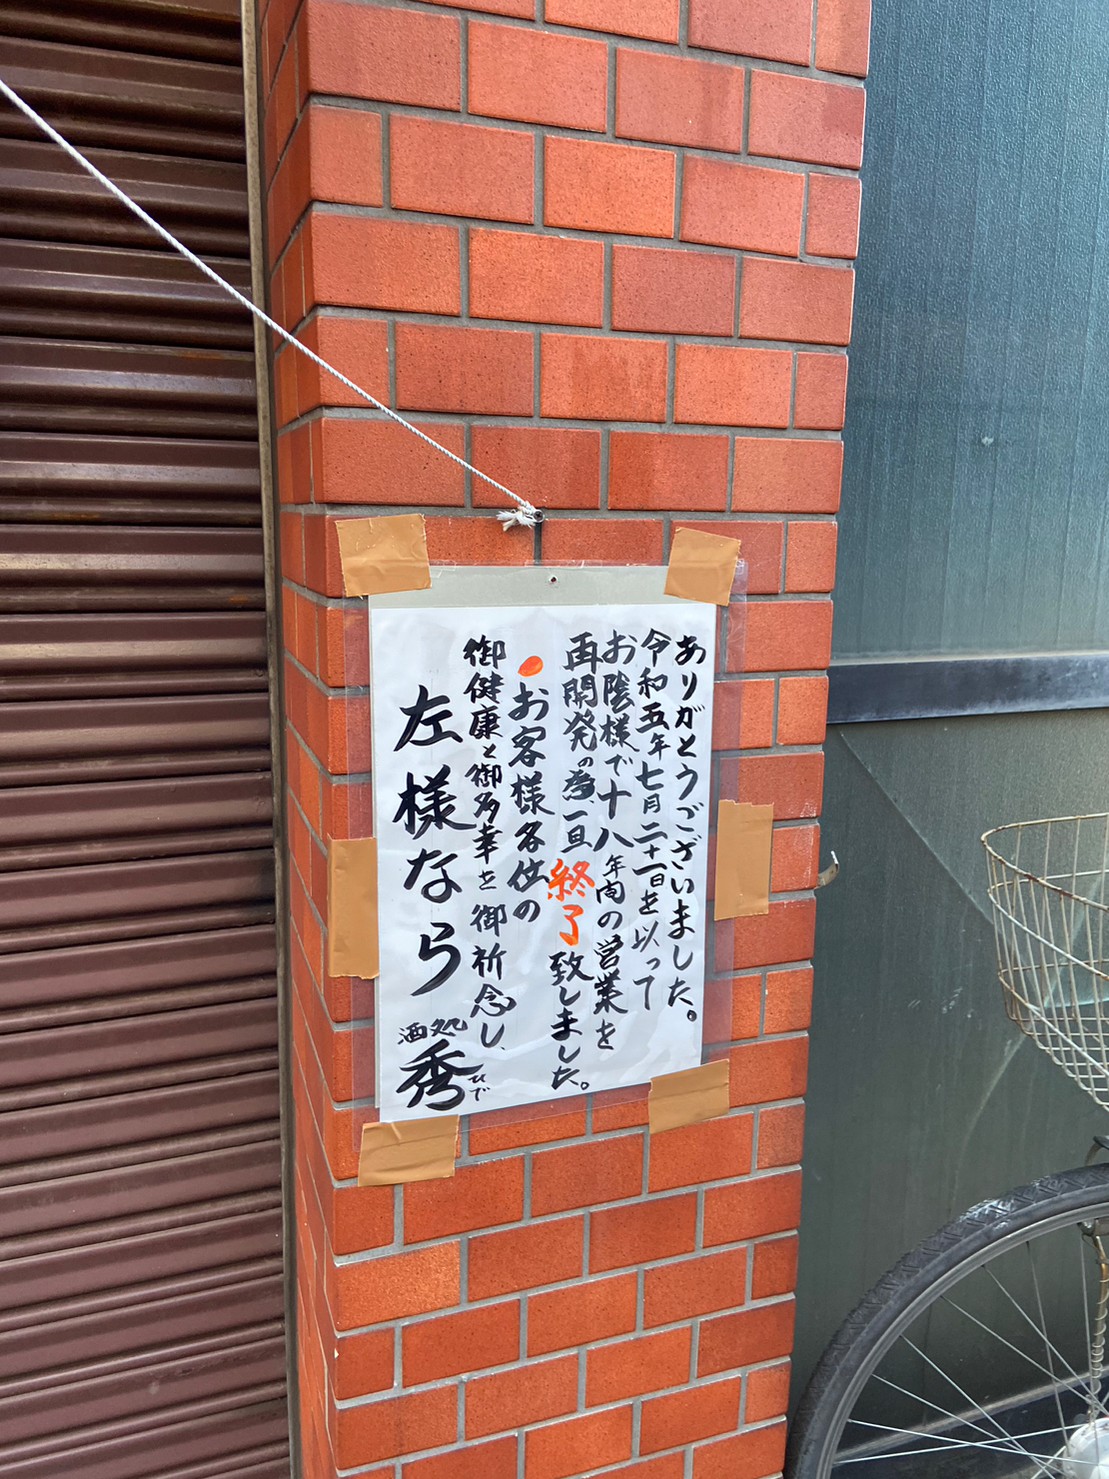 ありがとうございました。
令和五年七月二十一日を以って
お陰様で十八年間の営業を
再開発の為、一旦終了致しました。
お客様各位の
御健康と御多幸を御祈念し、
左様なら
酒処
秀
ひで